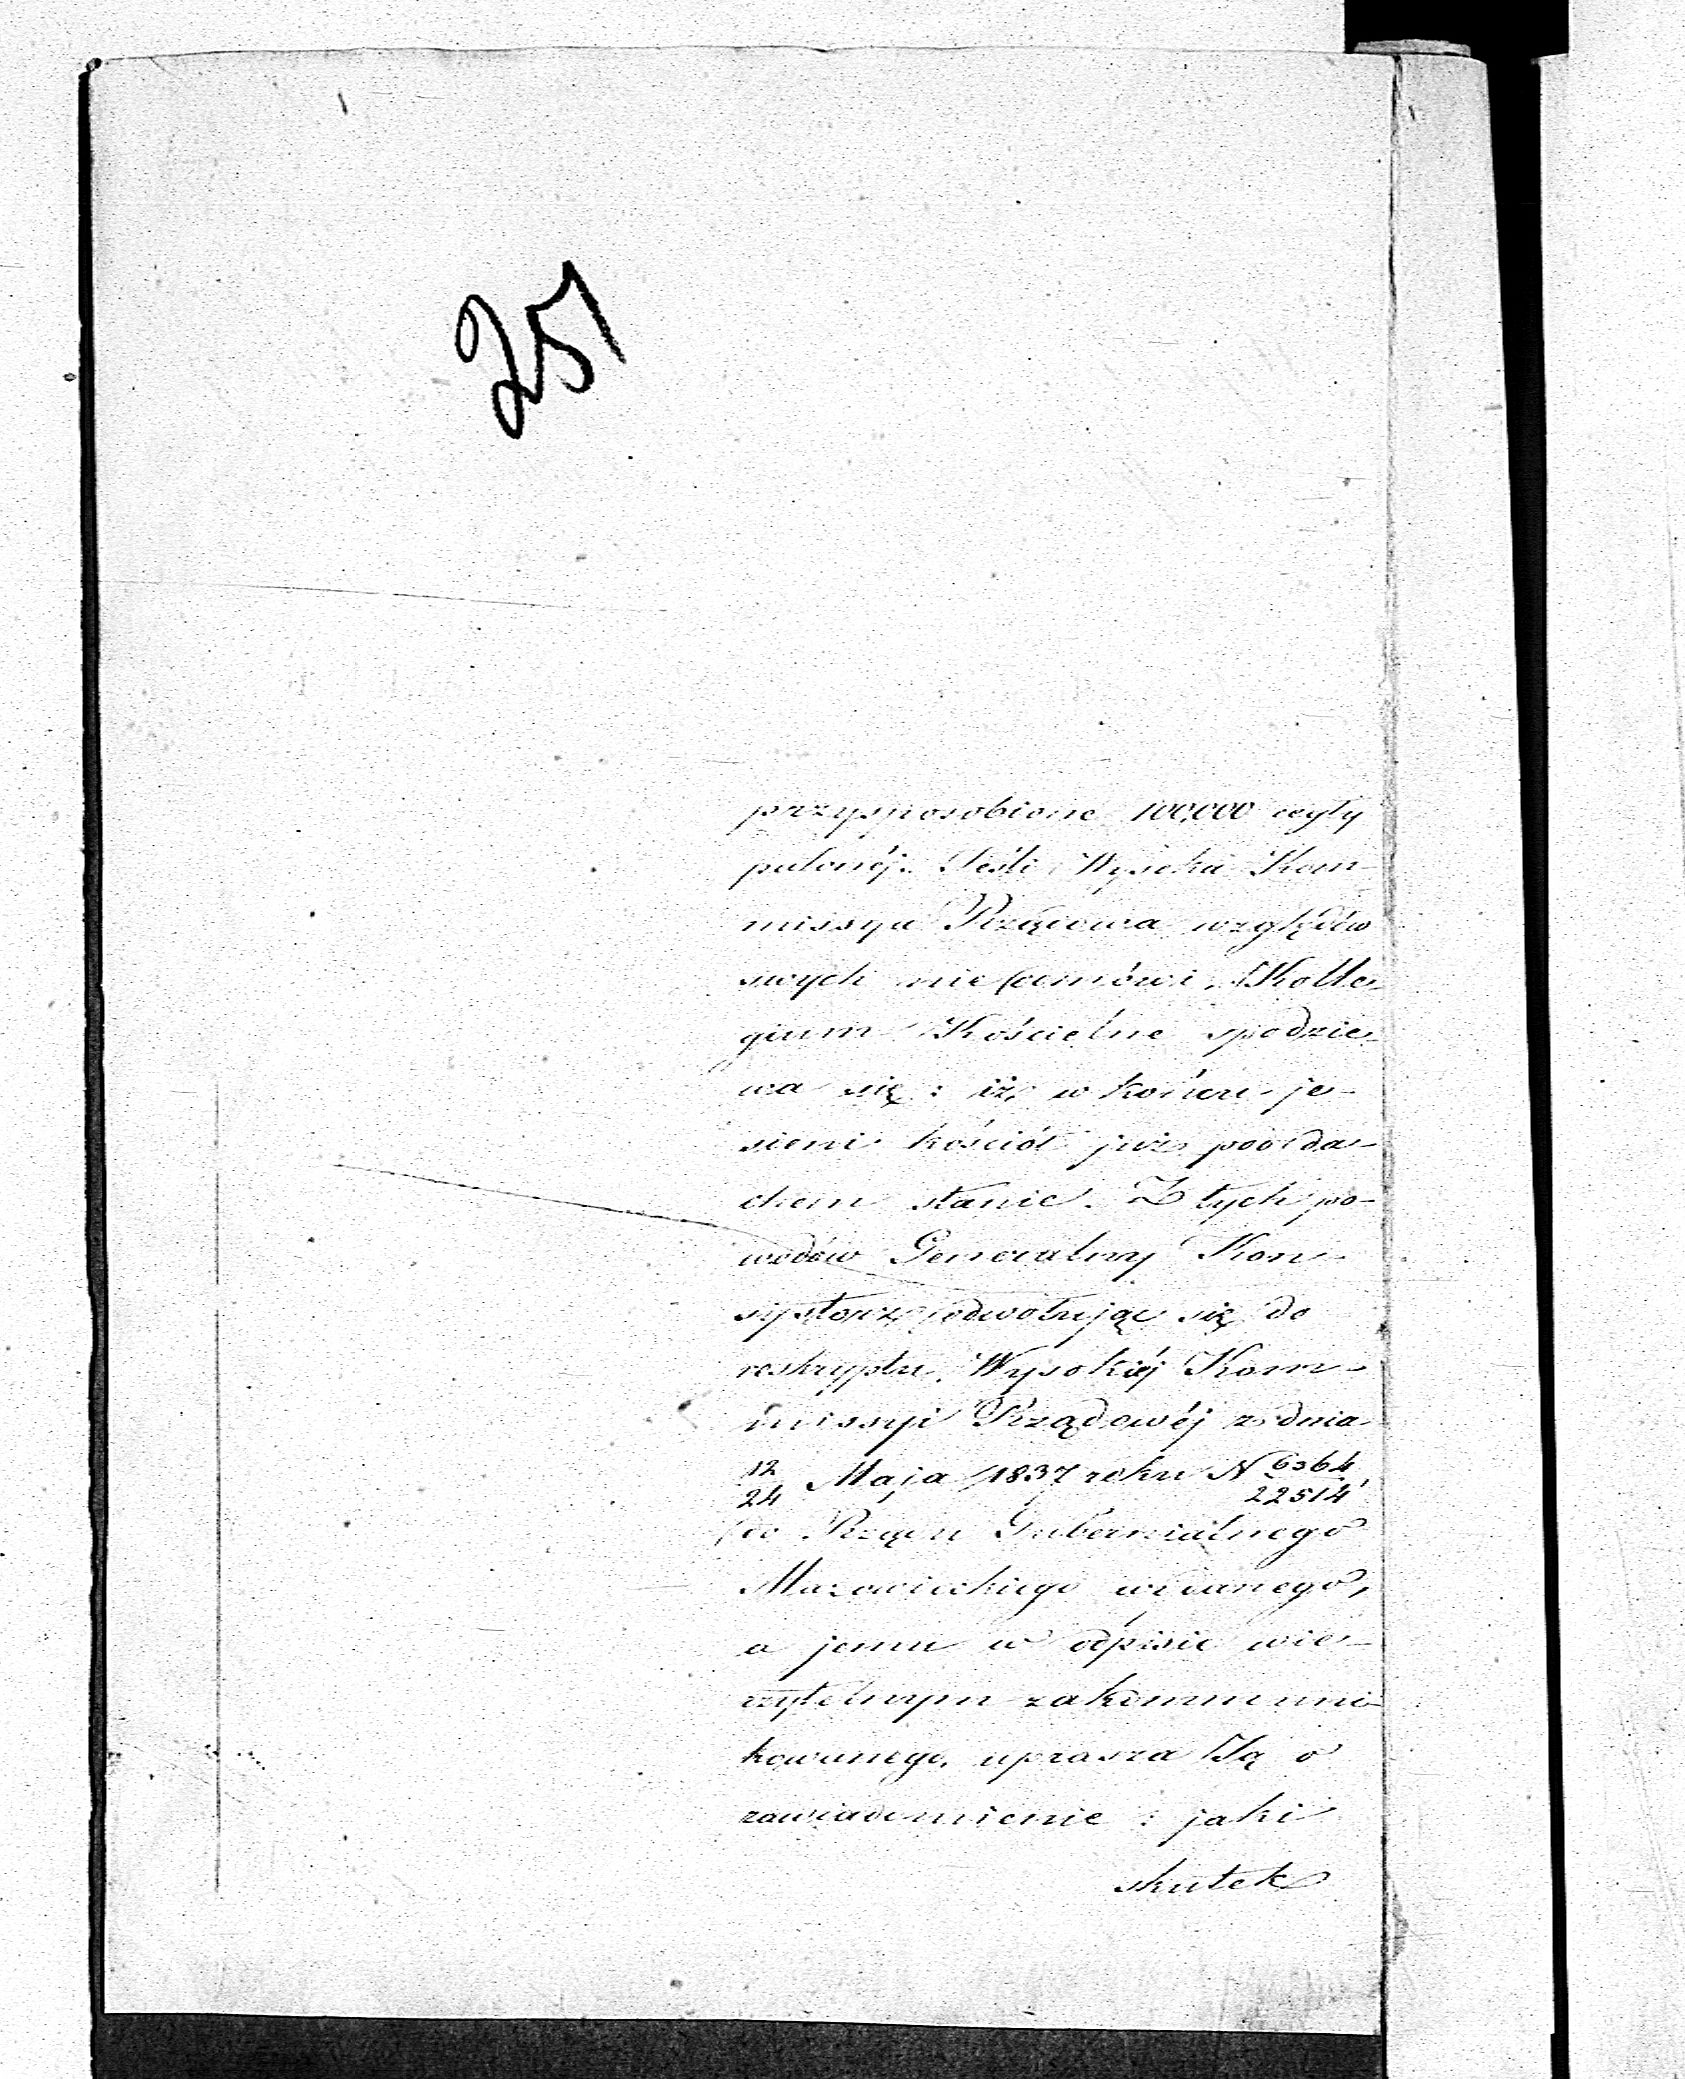 251
przysposobione 100,000 cegły
palonéj. Jeśli Wysoka Kom-
missya Rządowa względów
swych nie odmówi, Kolle-
gium Kościelne spodzie-
wa się: iż w końcu je-
sieni kościół już pod da-
chem stanie. Z tych po-
wodów Generalny Kon-
systorz odwołując się do
reskryptu Wysokiéj Kom-
missyi Rządowéj z dnia
12/24 Maja 1837 roku N 6364/22514
do Rządu Gubernialnego
Mazowieckiego wydanego,
a jemu w odpisie wie-
rzytelnym zakommuni-
kowanego, uprasza Ją o
zawiadomienie: jaki
skutek